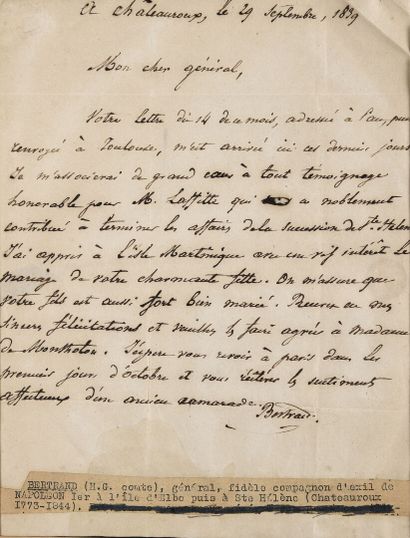 A Châteauroux, le 29 Septembre, 1839
Mon cher général,
Votre lettre du 14 de ce mois, adressée à Pau, puis
renvoyée à Toulouse, m'est arrivée ici ces derniers jours
Je m'associerai de grand cœur à tout temoignage
honorable pour M. Laffitte qui a noblement
contribué à terminer les affaires de la succession de Ste Helene
J'ai appris à l'isle Martinique avec un vif intérêt le
mariage de votre charmante fille. On m'assure que
votre fils est aussi fort bien marié. Recevez en mes
sinceres félicitations et veuillez les faire agréer à madame
de Montholon. J'espere vous revoir à paris dans les
premiers jours d'octobre et vous réiterer les sentiments
affectueux d'un ancien camarade.
Bertrand
BERTRAND (H.G. comte), général, fidèle compagnon d'exil de
NAPOLEON Ier à l'île d'Elbe puis à Ste Hélène (Chateauroux
1773-1844).